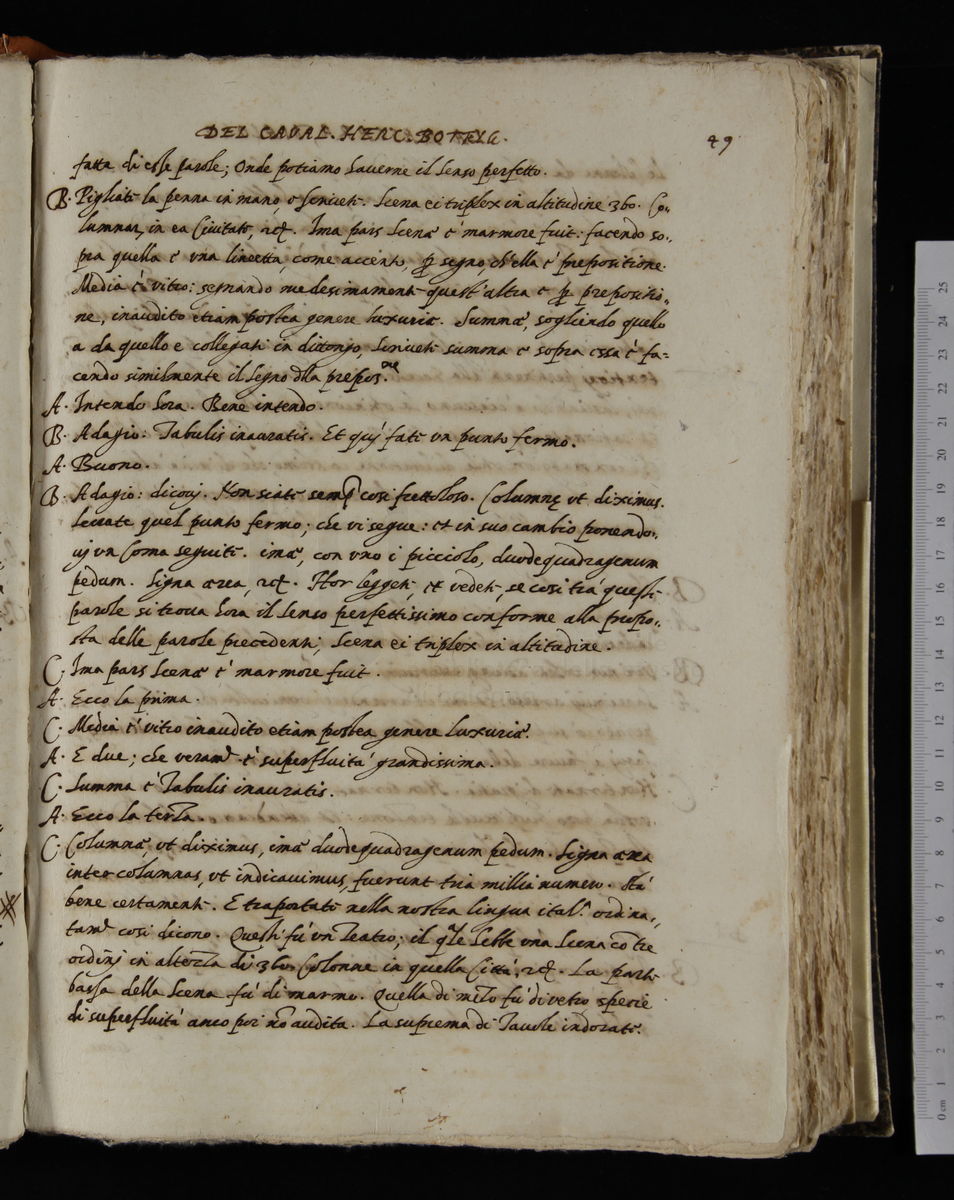 DEL CAVAL. HERC. BOTTRIG.
49
fatta di esse parole; Onde potiamo haverne il senso perfetto.
B. Pigliate la penna in mano, e scrivete. Scena ei triplex in altitudine 360. Co-
lumnar, in ea Civitate, &c. Ima pars Scenæ è marmore fuit: facendo so-
pra quella è una lineetta, come accento, p segno, ch'ella è prepositione.
Media è vitro: segnando medesimamente quest'altra e p prepositio-
ne, inaudito etiam postea genere luxuriæ. Summa, sogliendo quello
a da quello e collegati in dittongo, scrivete summa e sopra essa è fa-
cendo similmente il segno dlla prepos.ne
A. Intendo hora. Bene intendo.
B. Adagio: Tabulis inauratis. Et quì fate un punto fermo.
A. Buono.
B. Adagio: dicovi. Non siate semp così frettoloso. Columnę ut diximus.
levate quel punto fermo; che vi segue: et in suo cambio ponendo-
vj un Coma seguite. imæ, con uno i picciolo, duodequadragenum
pedum. Signa ærea, &c. Hor leggete, et vedete, se così trà queste
parole si trova hora il senso perfettissimo conforme alla propo-
sta delle parole precedenti; Scena ei triplex in altitudine.
C. Ima pars Scenæ è marmore fuit.
A. Ecco la prima.
C. Media è vitro inaudito etiam postea genere luxuriæ.
A. E due; che veram.te è superfluità grandissima.
C. Summa è Tabulis inauratis.
A. Ecco la terza.
C. Columnæ, ut diximus, imæ duodequadragenum pedum. Signa ærea
inter columnas, ut indicavimus, fuerunt tria millia numero. Stà
bene certamente. E traportate nella nostra lingua ital.a ordina-
tam.te così dicono. Questi fù un Teatro; il q.le hebbe una Scena cō tre
ordinj in altezza di 360. Colonne in quella Città, &c. La parte
bassa della Scena fù di marmo. Quella di mezo fù di vetro sperie
di superfluità anco poi nō audita. La suprema di Tavole indorate.